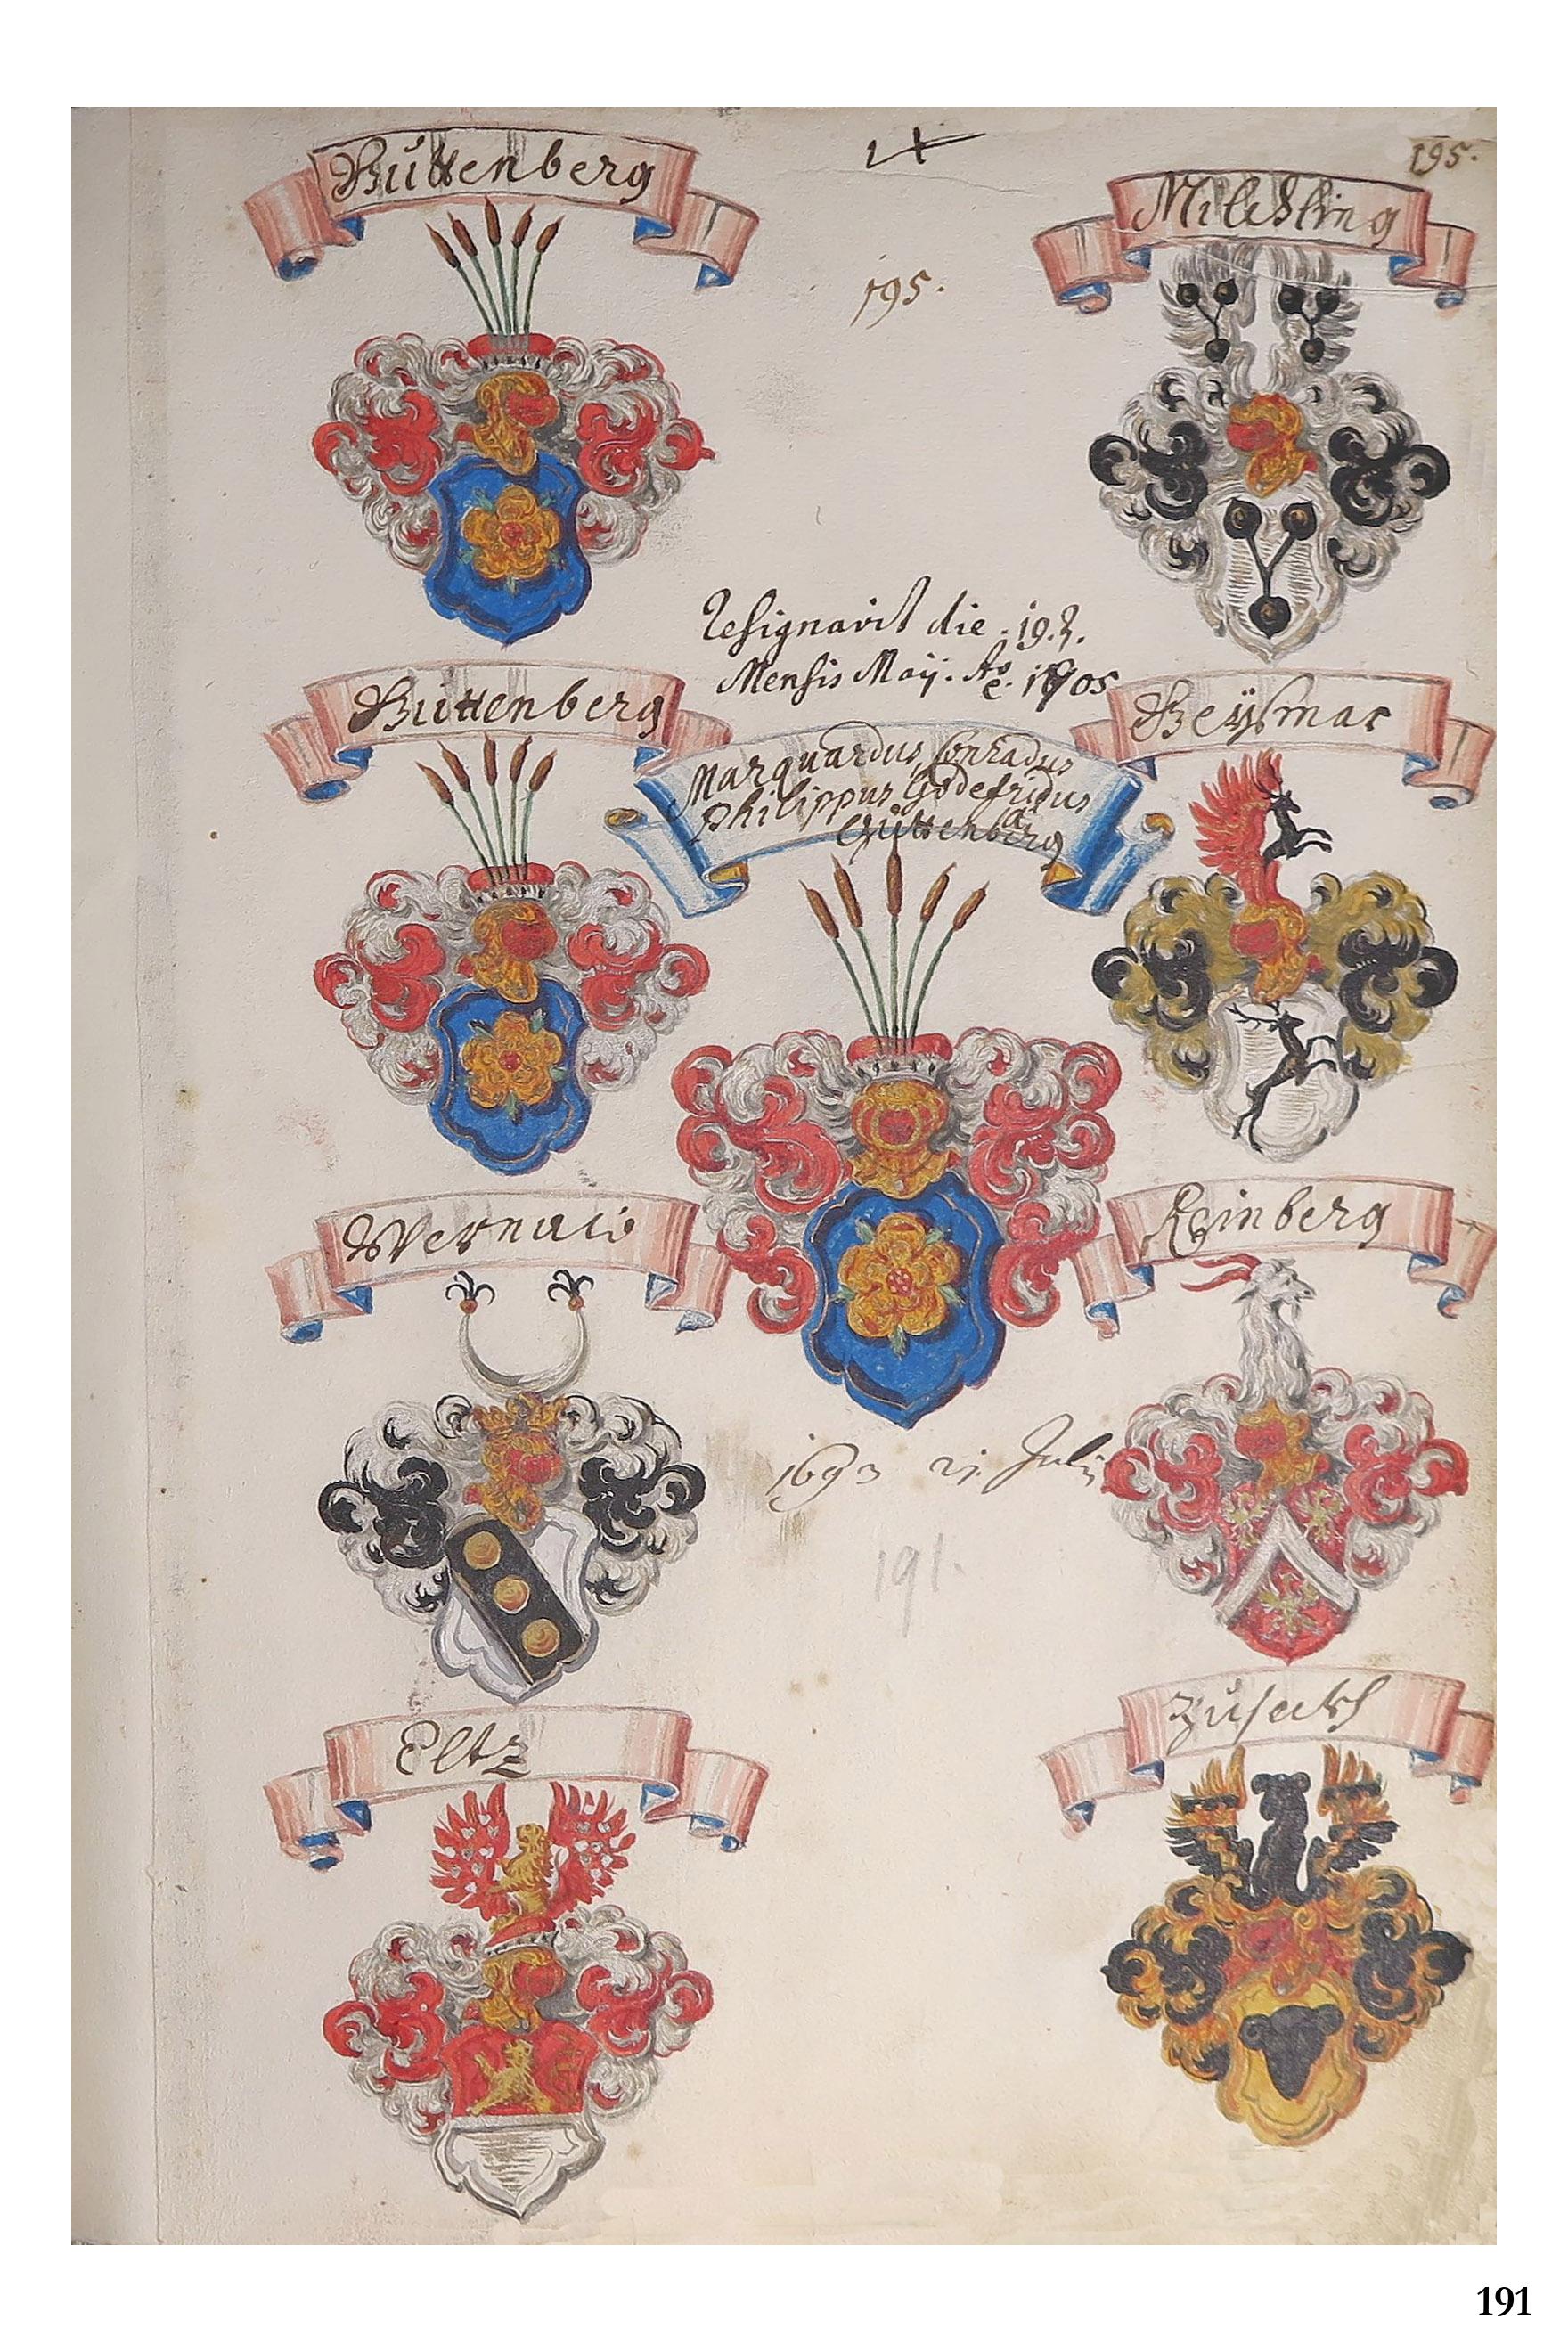 195.
Guttenberg
Milchling
195.
Resignavit die 19.
Mensis Maÿ. Ao. 1705
Guttenberg
Geÿsmar
Marquardus Conradus
Philippus Godefridus
à Guttenberg
Wernau
Reinberg
1693 21. Julij
191.
Eltz
191